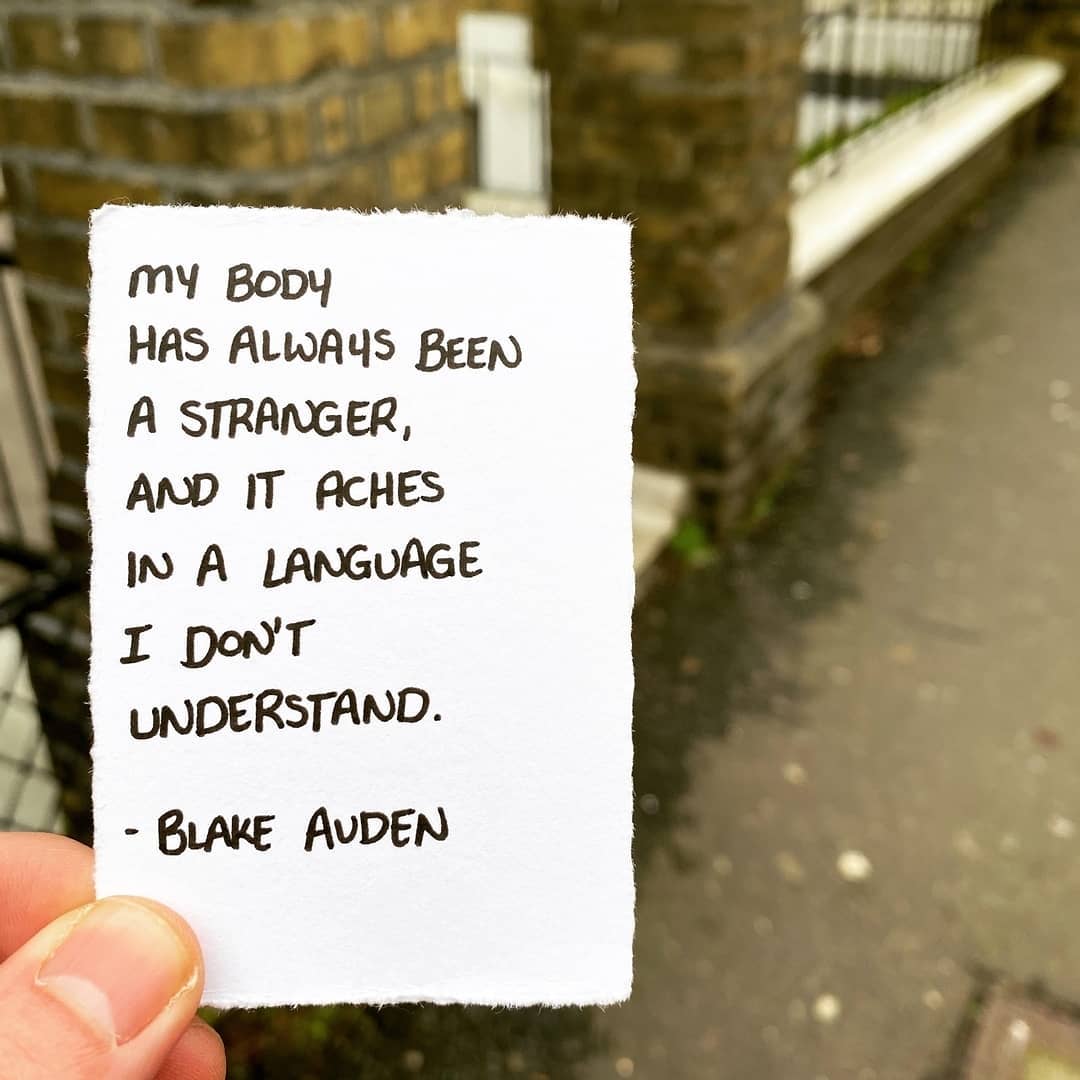 MY BODY
HAS ALWAYS BEEN
A STRANGER,
AND IT ACHES
IN A LANGUAGE
I DON'T
UNDERSTAND.
- BLAKE AUDEN